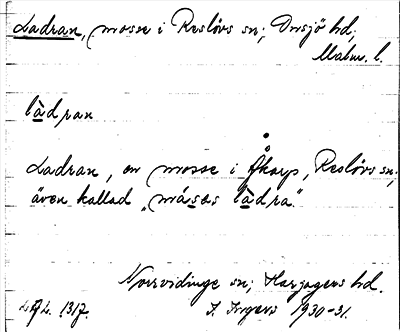 Ladran, mosse i Reslövs sn; Onsjö hd;
Malm. l.
làdran
Ladran, en mosse i Åkarp, Reslövs sn;
även kallad „måsəs làdra".
Norrvidinge sn; Harjagers hd.
LAL. 1317. I. Ingers 1930-31.